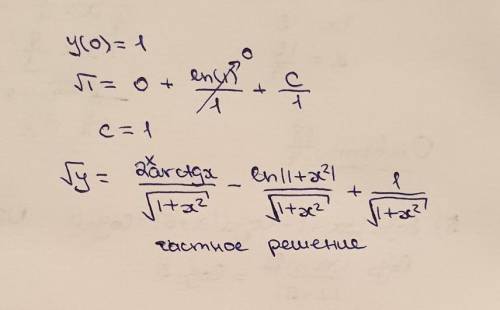 y(0) = 1
√1 = 0 + ln(1)/1 → 0 + c/1
c = 1
√y = 2x arctgx/√(1+x²) − ln|1+x²|/√(1+x²) + 1/√(1+x²)
частное решение